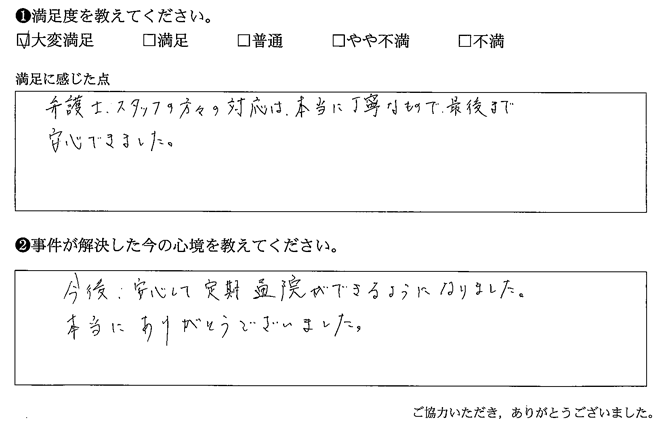 ❶満足度を教えてください。
☑大変満足 □満足 □普通 □やや不満 □不満
満足に感じた点
弁護士、スタッフの方々の対応は、本当に丁寧なもので、最後まで
安心できました。
❷事件が解決した今の心境を教えてください。
今後、安心して定期通院ができるようになりました。
本当にありがとうございました。
ご協力いただき，ありがとうございました。